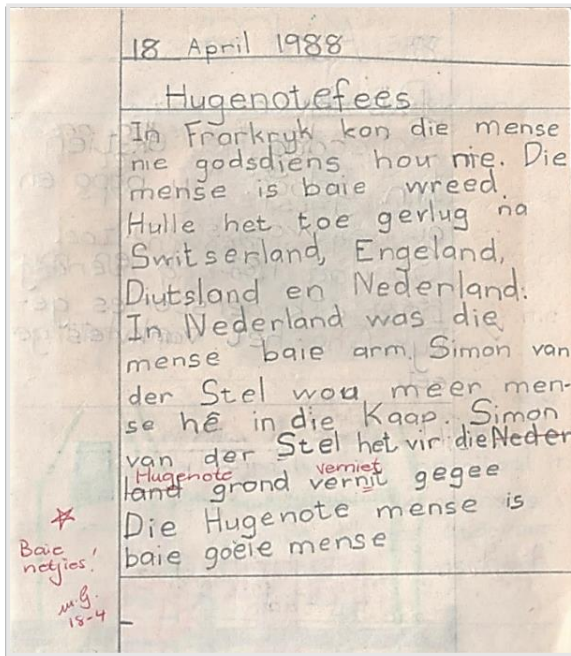 18 April 1988
Hugenotefees
In Frankryk kon die mense
nie godsdiens hou nie. Die
mense is baie wreed.
Hulle het toe gerlug na
Switserland, Engeland,
Diutsland en Nederland.
In Nederland was die
mense baie arm. Simon van
der Stel wou meer men-
se hê in die Kaap. Simon
van der Stel het vir die Neder
Hugenote verniet
land grond vernit gegee
Die Hugenote mense is
baie goeie mense
Baie
netjies!
M.G.
18-4